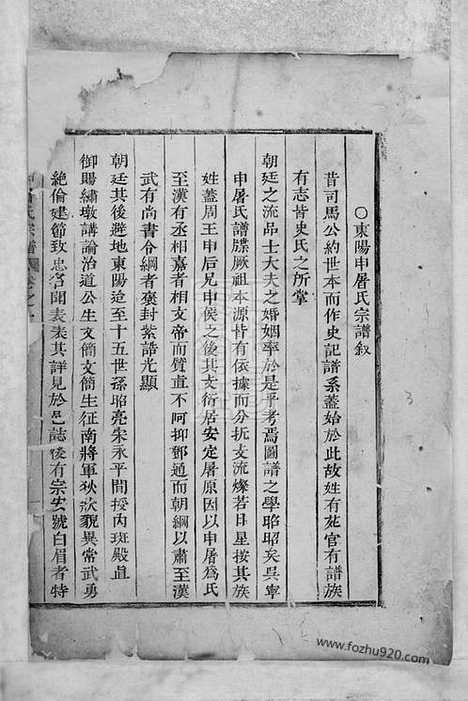 ○東陽申屠氏宗譜叙
昔司馬公約世本而作史記譜系蓋始於此故姓有苑官有譜族
有志皆史氏之所掌
朝廷之流品士大夫之婚姻率於是乎考焉圖譜之學昭昭矣吳寧
申屠氏譜牒厥祖本源皆有依據而分扺支流燦若日星按其族
姓蓋周王申后兄申侯之後其支衍居安定屠原因以申屠為氏
至漢有丞相嘉者相文帝而贊直不阿抑鄧通而朝綱以肅至漢
武有尚書令綱者褒封紫誥光顯
朝廷其後避地東陽迨至十五世孫昭亮宋永平間授內班殿直
御賜繡墩講論治道公生文簡文簡生征南將軍狄欤貌異常武勇
絕倫建節致忠名聞表表其詳見於邑誌後有宗安號白眉者特
氏宗譜 卷之一
www.fozhu920.com